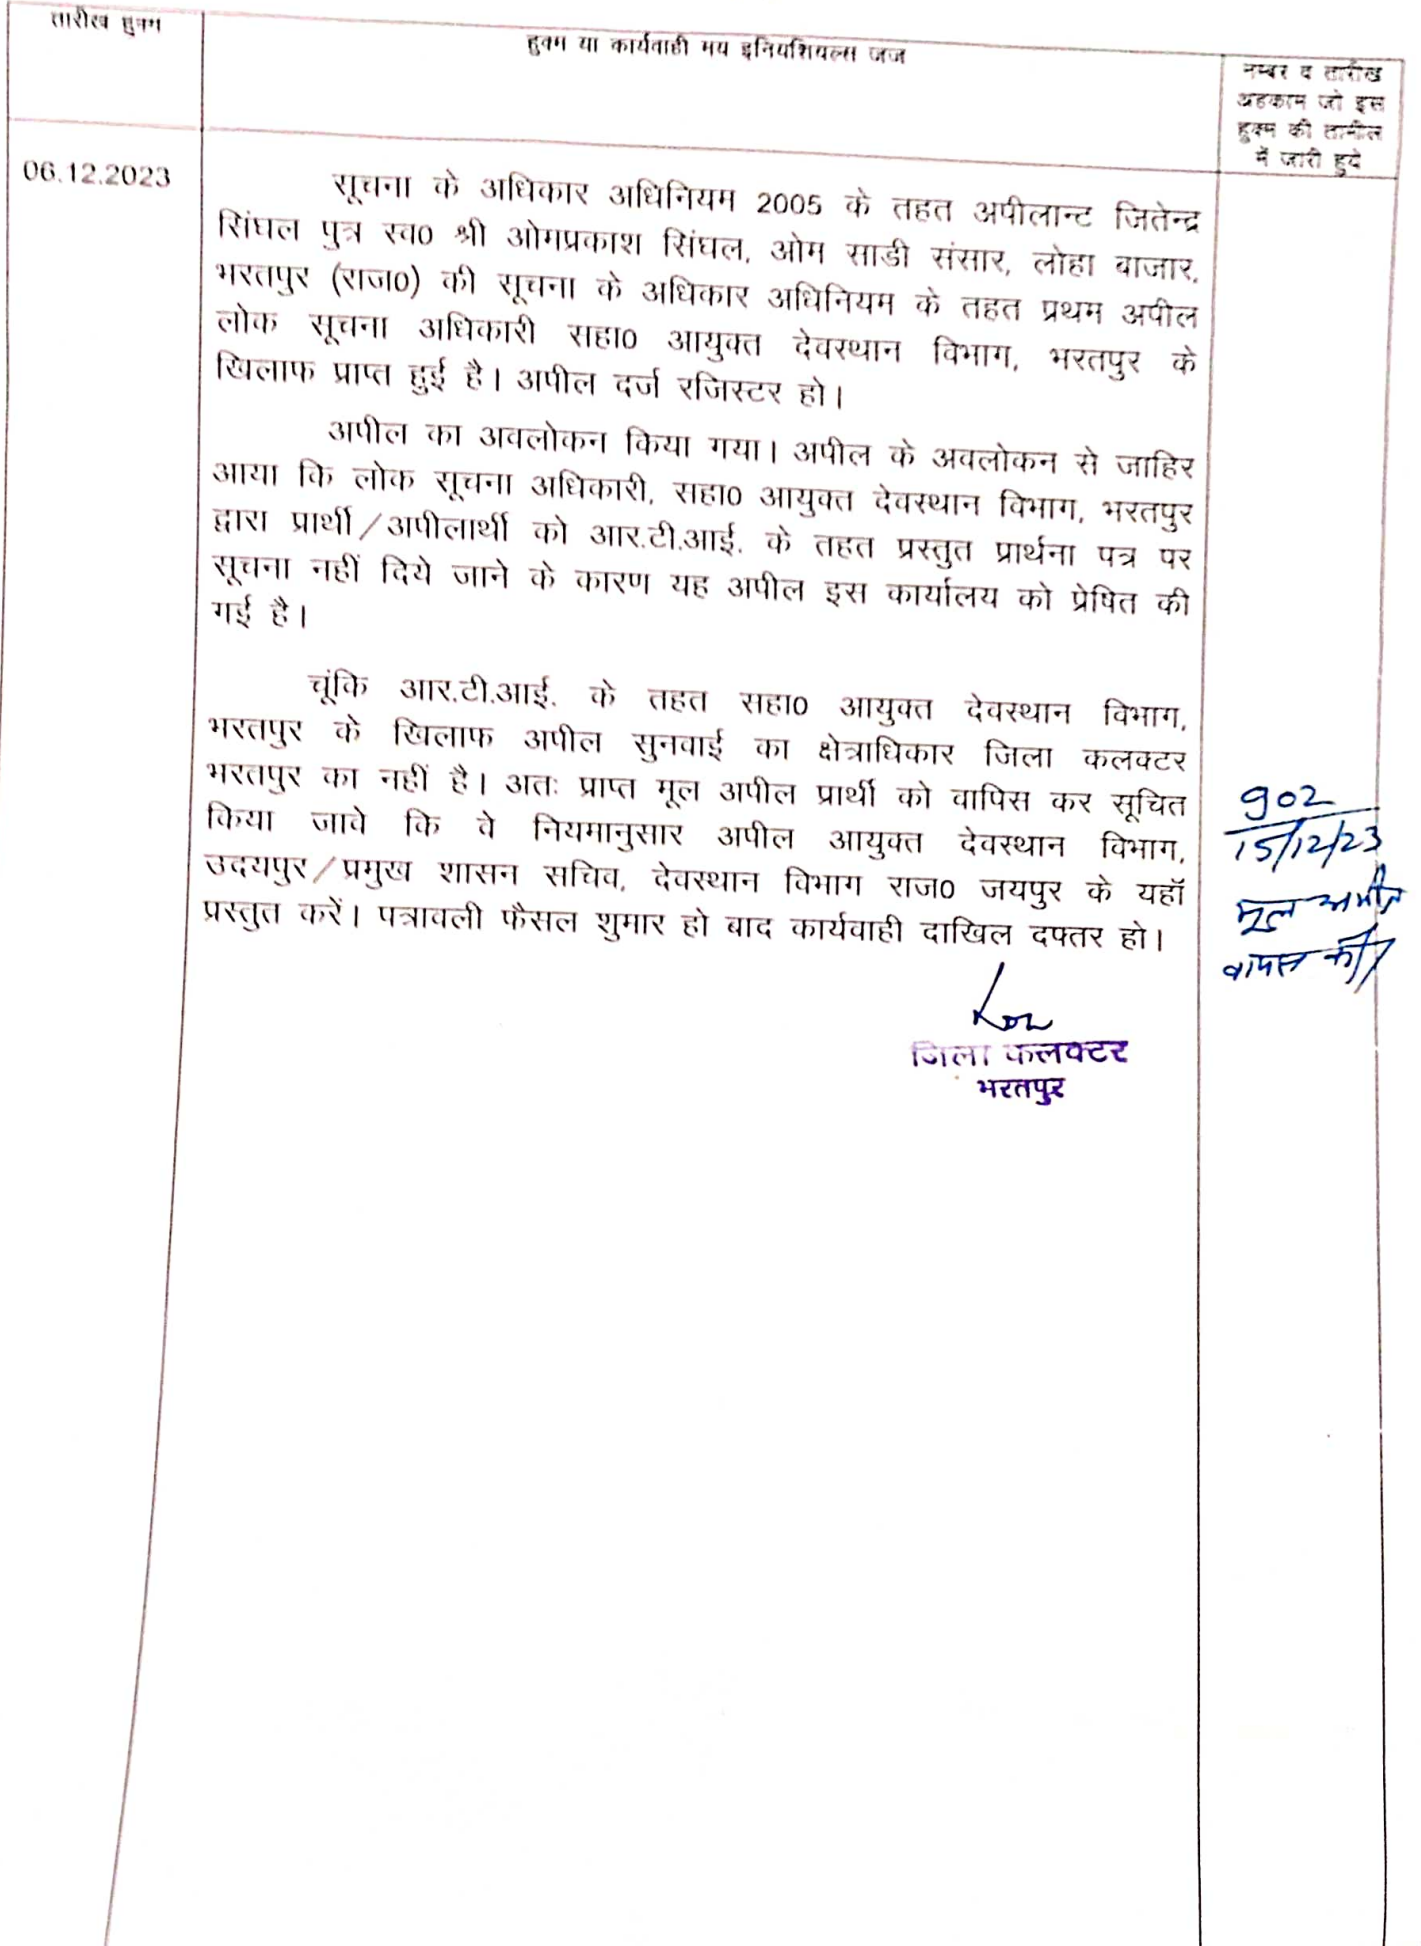 तारीख हुक्म
हुक्म या कार्यवाही मय इनियशियल्स जज
नम्बर व तारीख
अहकाम जो इस
हुक्म की तामील
में जारी हुये
06.12.2023
सूचना के अधिकार अधिनियम 2005 के तहत अपीलान्ट जितेन्द्र
सिंघल पुत्र स्व0 श्री ओमप्रकाश सिंघल, ओम साडी संसार, लोहा बाजार,
भरतपुर (राज0) की सूचना के अधिकार अधिनियम के तहत प्रथम अपील
लोक सूचना अधिकारी सहा0 आयुक्त देवस्थान विभाग, भरतपुर के
खिलाफ प्राप्त हुई है। अपील दर्ज रजिस्टर हो।
अपील का अवलोकन किया गया। अपील के अवलोकन से जाहिर
आया कि लोक सूचना अधिकारी, सहा0 आयुक्त देवस्थान विभाग, भरतपुर
द्वारा प्रार्थी/अपीलार्थी को आर.टी.आई. के तहत प्रस्तुत प्रार्थना पत्र पर
सूचना नहीं दिये जाने के कारण यह अपील इस कार्यालय को प्रेषित की
गई है।
चूंकि आर.टी.आई. के तहत सहा0 आयुक्त देवस्थान विभाग,
भरतपुर के खिलाफ अपील सुनवाई का क्षेत्राधिकार जिला कलक्टर
भरतपुर का नहीं है। अतः प्राप्त मूल अपील प्रार्थी को वापिस कर सूचित
किया जावे कि वे नियमानुसार अपील आयुक्त देवस्थान विभाग,
उदयपुर/प्रमुख शासन सचिव, देवस्थान विभाग राज0 जयपुर के यहॉ
प्रस्तुत करें। पत्रावली फैसल शुमार हो बाद कार्यवाही दाखिल दफ्तर हो।
902
15/12/23
मूल अपील
वापस की
जिला कलक्टर
भरतपुर